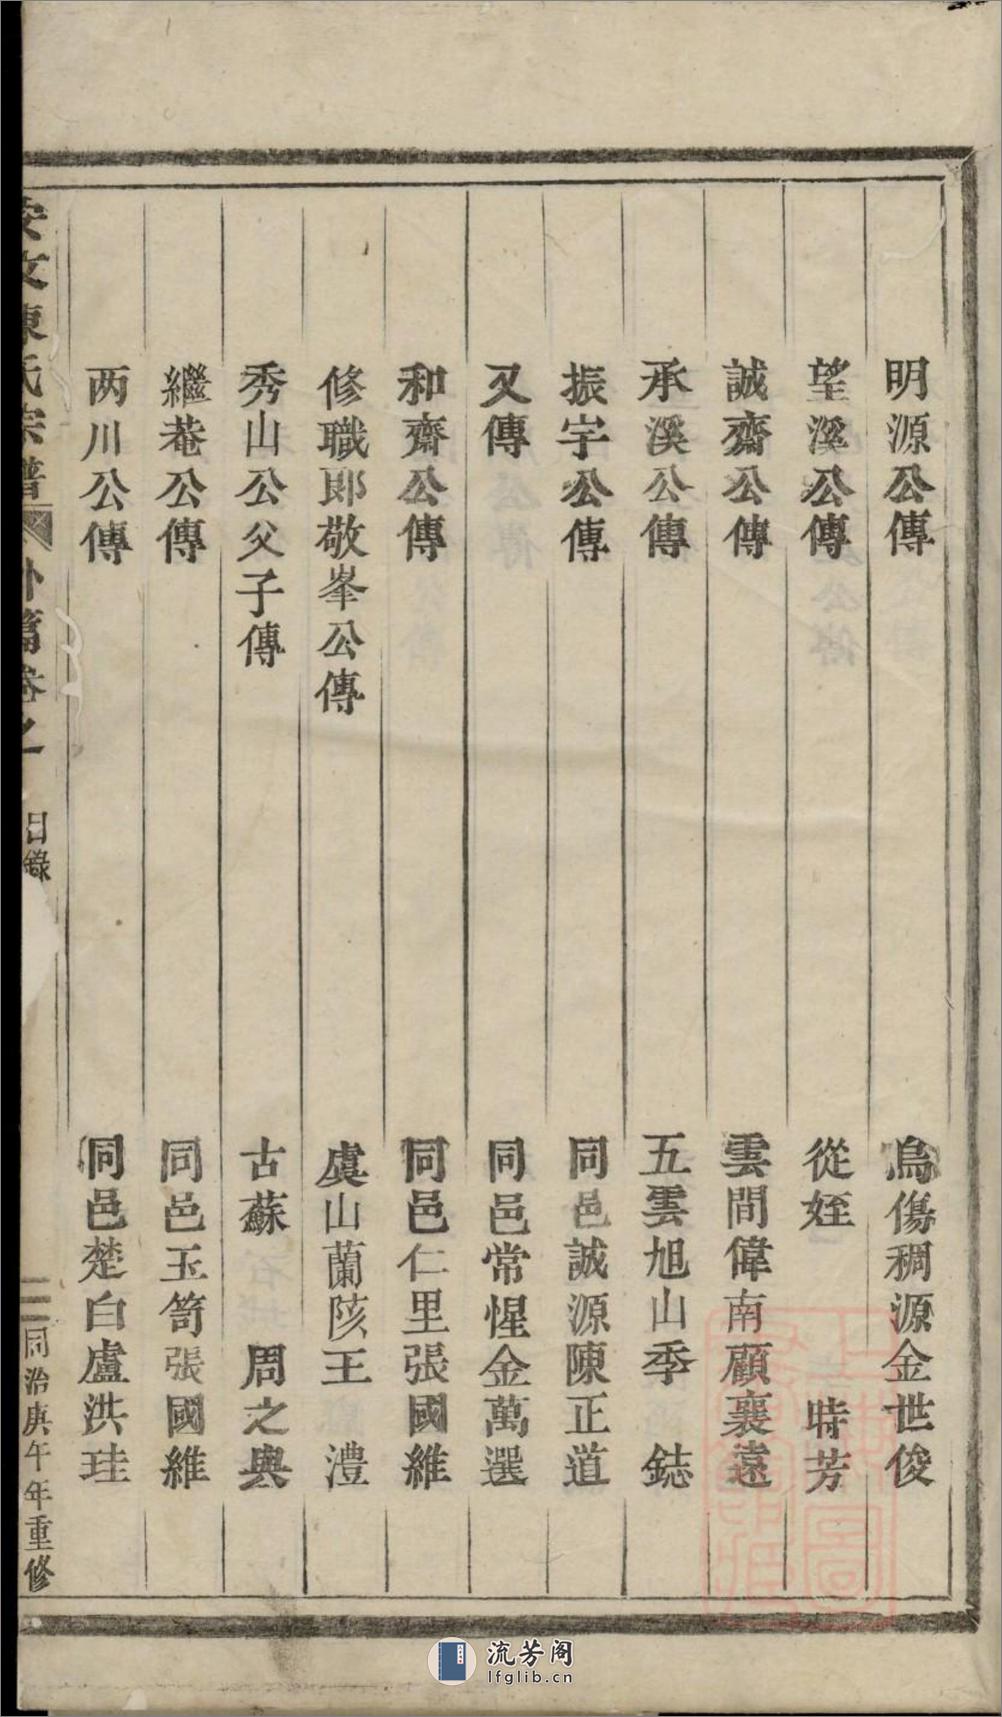 明源公傳 烏傷稠源金世俊
望溪公傳 從姪 時芳
誠齋公傳 雲間偉南顧襄遠
承溪公傳 五雲旭山季 鋕
振宇公傳 同邑誠源陳正道
又傳 同邑常惺金萬選
和齋公傳 同邑仁里張國維
修職郎敬峯公傳 虞山蘭陔王 澧
秀山公父子傳 古蘇 周之輿
繼菴公傳 同邑玉笥張國維
两川公傳 同邑楚白盧洪珪
安文陳氏宗譜 外篇卷之一 目錄 三 同治庚午年重修
流芳阁
lfglib.cn